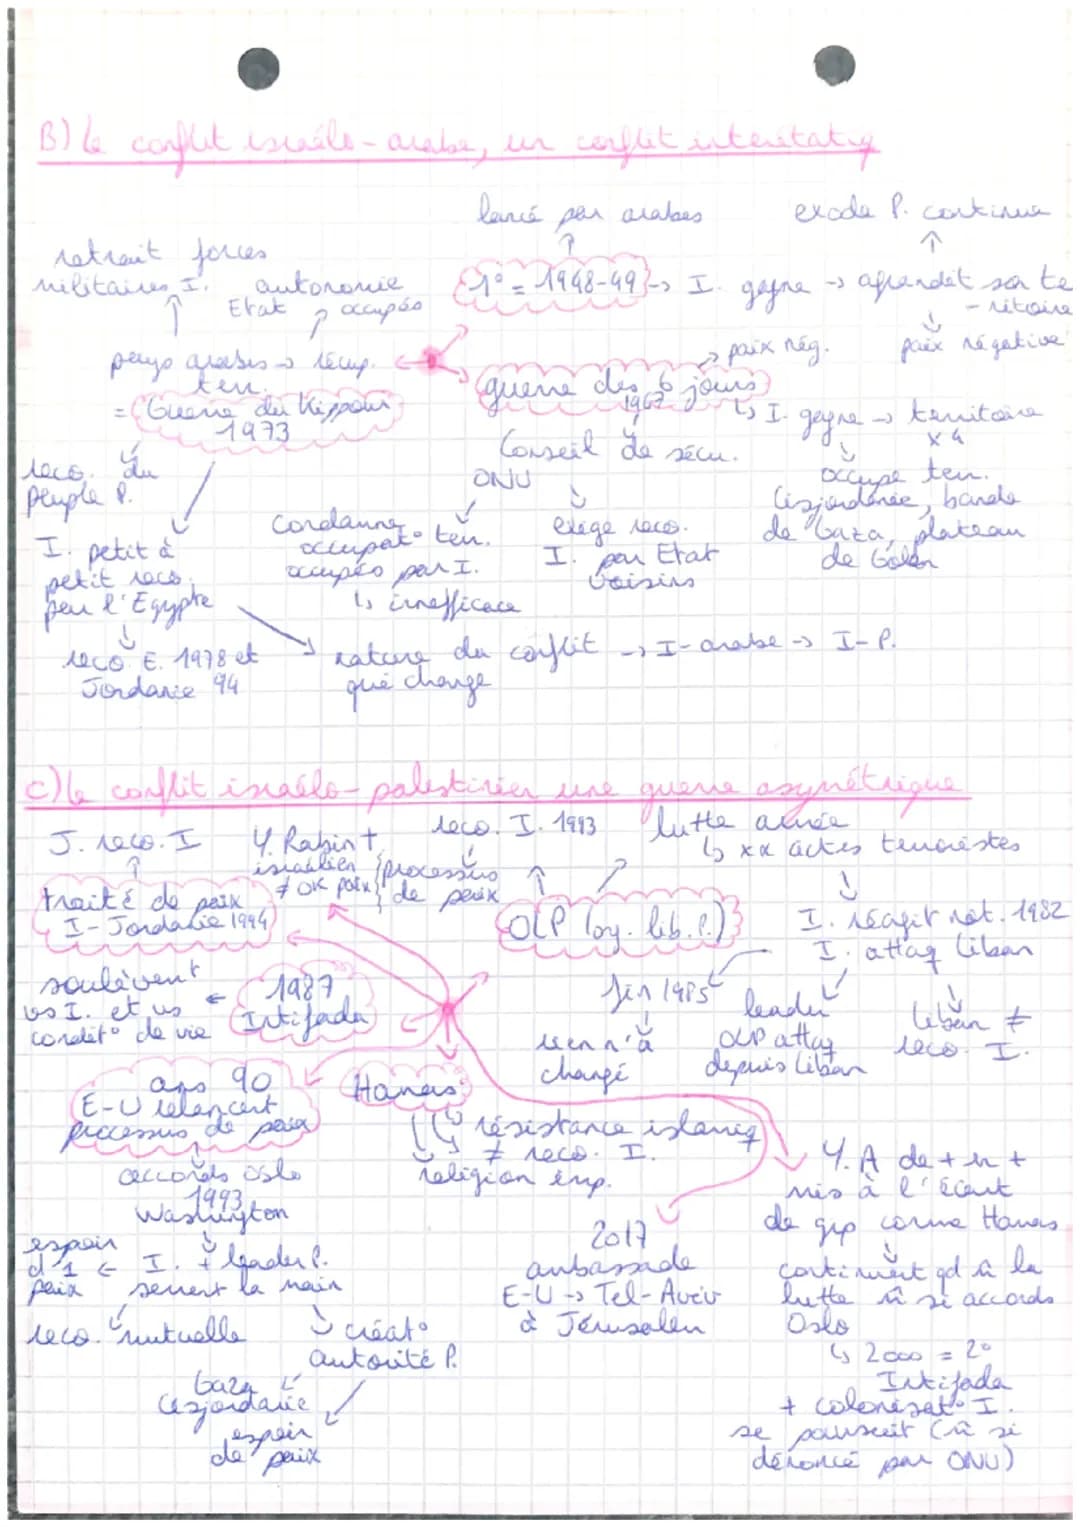 B) le conflit israélo-arabe, un conflit interétatiq
lancé par arabes
exode P. continue
retrait forces
militaires I.
autonomie
Etat occupés
1° = 1948-49 -> I. gagne -> agrandit son te
-ritoire
paix négative
pays arabes -> récup.
terr.
= Guerre du Kippour
1973
guerre des 6 jours
1967
paix nég.
I. gagne -> territoire
x 4
occupe terr.
Cisjordanie, bande
de Gaza, plateau
de Golan
Conseil de sécu.
ONU
condamne
occupat° terr.
occupés par I.
↳ innefficace
exige reco.
I. par Etat
voisins
reco. du
peuple P.
I. petit à
petit reco.
par l'Egypte
reco E. 1978 et
Jordanie 94
nature du conflit -> I-arabe -> I-P.
qui change
c) le conflit israélo-palestinien une guerre asymétrique
J. reco. I
traité de paix
I-Jordanie 1994
Y. Rabin †
israélien
≠ OK paix
processus
de paix
reco. I. 1993
lutte armée
↳ xx actes terroristes
OLP (org. lib. P.)
I. réagit not. 1982
I. attaq Liban
fin 1985
rien n'à
changé
leader
OLP attaq
depuis Liban
Liban ≠
reco. I.
soulèvent
vs I. et vs
condit° de vie
1987
Intifada
ans 90
E-U relancent
processus de paix
accords Oslo
1993
Washington
I. + leader P.
serrent la main
espoir
d'1
paix
reco. mutuelle
créat°
autorité P.
Gaza
Cisjordanie
espoir
de paix
Hamas
↳ résistance islamiq
≠ reco. I.
religion imp.
2017
ambassade
E-U -> Tel-Aviv
à Jérusalem
Y. A de + en +
mis à l'écart
de grp comme Hamas
continuent qd m̂ la
lutte m̂ si accords
Oslo
↳ 2000 = 2°
Intifada
+ colonisat° I.
se poursuit (m̂ si
dénoncé par ONU)